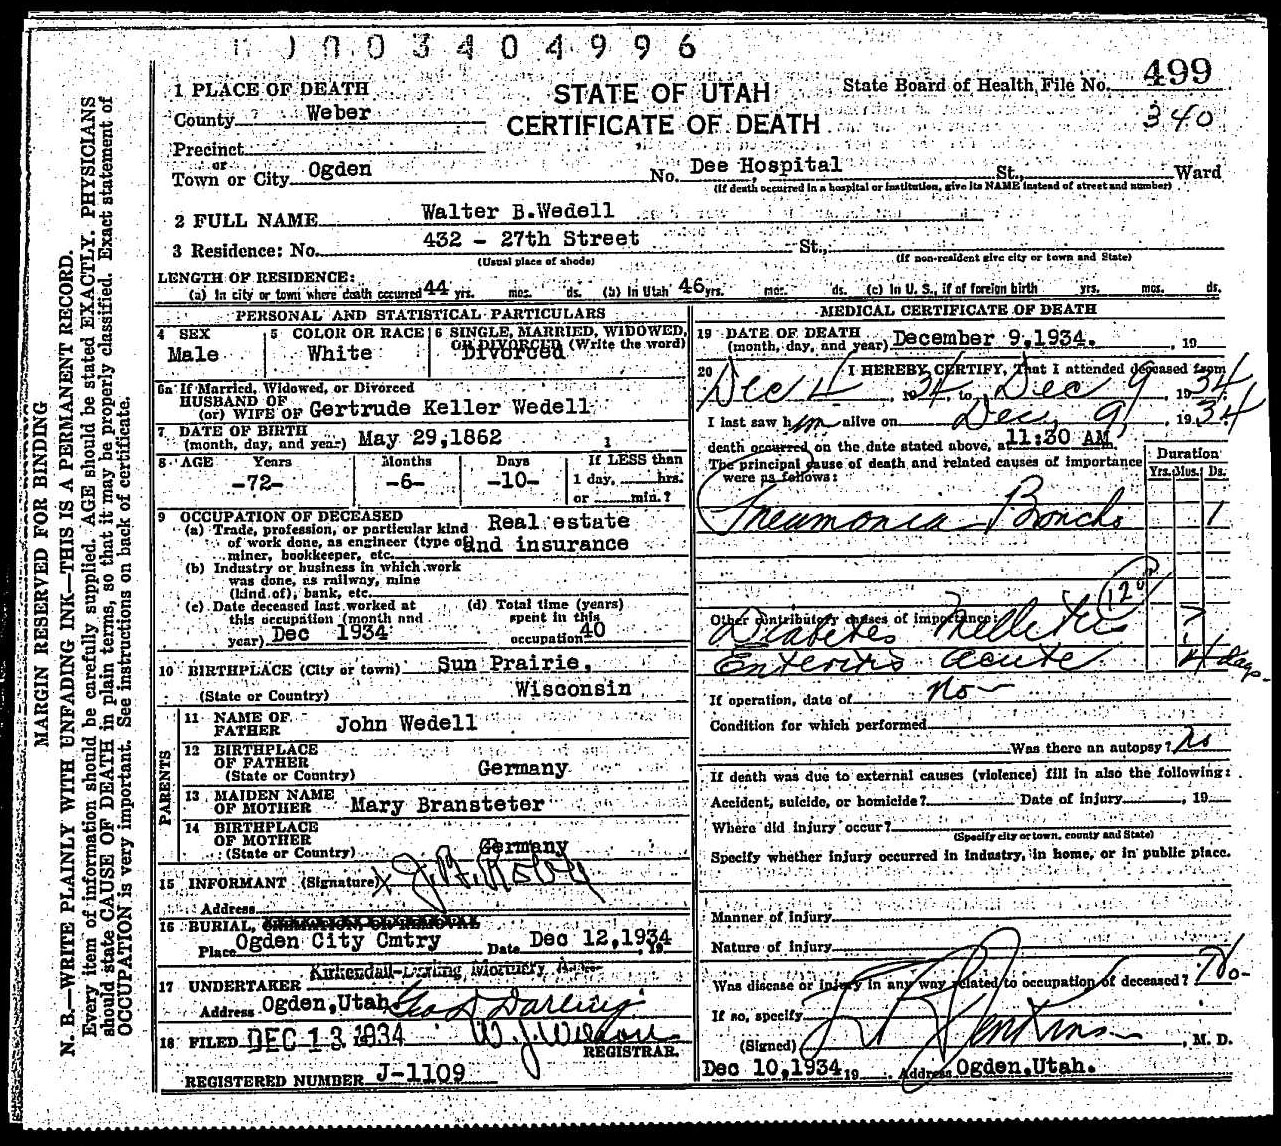 0003404996
1 PLACE OF DEATH
STATE OF UTAH
State Board of Health File No. 499
County Weber
CERTIFICATE OF DEATH
340
Precinct
or
Town or City Ogden No. Dee Hospital St., Ward
(If death occurred in a hospital or institution, give its NAME instead of street and number)
2 FULL NAME Walter B.Wedell
3 Residence: No. 432 - 27th Street St.,
(Usual place of abode) (If non-resident give city or town and State)
LENGTH OF RESIDENCE:
(a) In city or town where death occurred 44 yrs. mos. ds. (b) In Utah 46 yrs. mos. ds. (c) In U. S., if of foreign birth yrs. mos. ds.
PERSONAL AND STATISTICAL PARTICULARS
4 SEX
Male
5 COLOR OR RACE
White
6 SINGLE, MARRIED, WIDOWED,
OR DIVORCED (Write the word)
Divorced
6a If Married, Widowed, or Divorced
HUSBAND OF
(or) WIFE OF Gertrude Keller Wedell
7 DATE OF BIRTH
(month, day, and year) May 29,1862 1
8 AGE Years Months Days If LESS than
-72- -6- -10- 1 day, hrs.
or min.?
9 OCCUPATION OF DECEASED
(a) Trade, profession, or particular kind Real estate
of work done, as engineer (type of and insurance
miner, bookkeeper, etc.
(b) Industry or business in which work
was done, as railway, mine
(kind of), bank, etc.
(c) Date deceased last worked at
this occupation (month and
year) Dec 1934
(d) Total time (years)
spent in this
occupation 40
10 BIRTHPLACE (City or town) Sun Prairie,
(State or Country) Wisconsin
PARENTS
11 NAME OF
FATHER John Wedell
12 BIRTHPLACE
OF FATHER
(State or Country) Germany
13 MAIDEN NAME
OF MOTHER Mary Bransteter
14 BIRTHPLACE
OF MOTHER
(State or Country) Germany
15 INFORMANT (Signature) x J.H.
Address
16 BURIAL, CREMATION OR REMOVAL
Place Ogden City Cmtry Date Dec 12,1934 19
Kirkendall-Darling Mortuary
17 UNDERTAKER
Address Ogden,Utah Geo D Darling
18 FILED DEC 13 1934 W.J. Wilson
REGISTRAR.
REGISTERED NUMBER J-1109
MEDICAL CERTIFICATE OF DEATH
19 DATE OF DEATH
(month, day, and year) December 9,1934. , 19
20 I HEREBY CERTIFY, That I attended deceased from
Dec 4, 1934, to Dec 9, 1934
I last saw him alive on Dec, 9, 1934
death occurred on the date stated above, at 11:30 AM
The principal cause of death and related causes of importance
were as follows:
Duration
Yrs. Mos. Ds.
Pneumonia Broncho 1
Other contributory causes of importance:
Diabetes Mellitus ?
Enteritis acute 4 days
If operation, date of no
Condition for which performed
Was there an autopsy? no
If death was due to external causes (violence) fill in also the following:
Accident, suicide, or homicide? Date of injury , 19
Where did injury occur?
(Specify city or town, county and State)
Specify whether injury occurred in industry, in home, or in public place.
Manner of injury
Nature of injury
Was disease or injury in any way related to occupation of deceased? No-
If so, specify
(Signed) Jenkins , M. D.
Dec 10,1934 19 . Address Ogden,Utah.
MARGIN RESERVED FOR BINDING
N. B.—WRITE PLAINLY WITH UNFADING INK—THIS IS A PERMANENT RECORD.
Every item of information should be carefully supplied. AGE should be stated EXACTLY. PHYSICIANS
should state CAUSE OF DEATH in plain terms, so that it may be properly classified. Exact statement of
OCCUPATION is very important. See instructions on back of certificate.